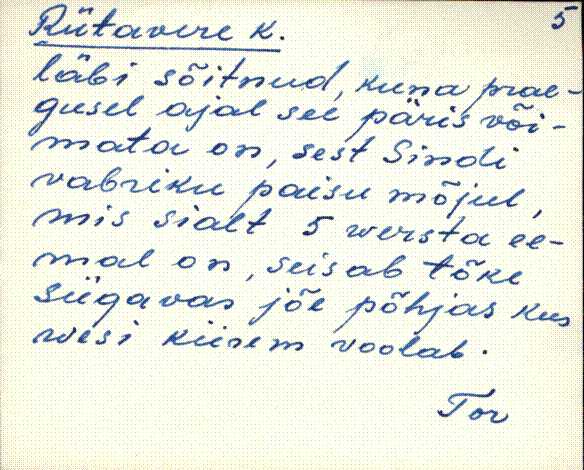 Rütavere k.
5
läbi sõitnud, kuna prae-
gusel ajal see päris või-
mata on, sest Sindi
vabriku paisu mõjul,
mis sialt 5 wersta ee-
mal on, seisab tõke
sügavas jõe põhjas kus
wesi kiirem voolab.
Tor